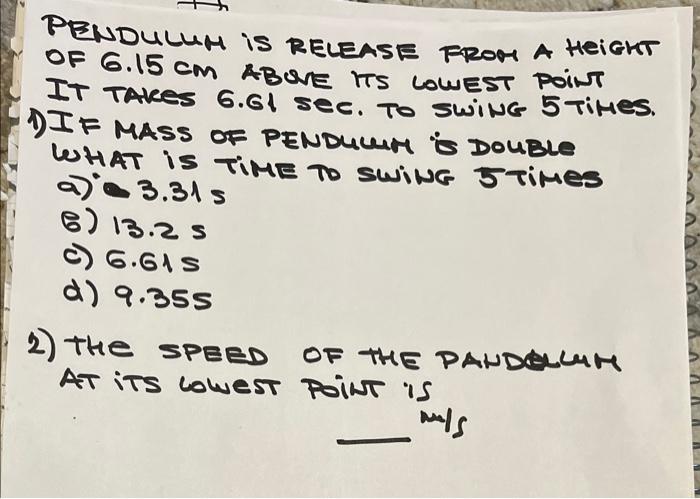 PENDULUM is RELEASE FROM A HEIGHT
OF 6.15 cm ABOVE ITS LOWEST POINT
IT TAKES 6.61 sec. TO SWING 5 TIMES.
1) IF MASS OF PENDULUM is DOUBLE
WHAT is TIME TO SWING 5 TIMES
a) 3.31 s
B) 13.2 s
c) 6.61 s
d) 9.35 s
2) THE SPEED OF THE PANDOLLUM
AT ITS LOWEST POINT IS
___ m/s